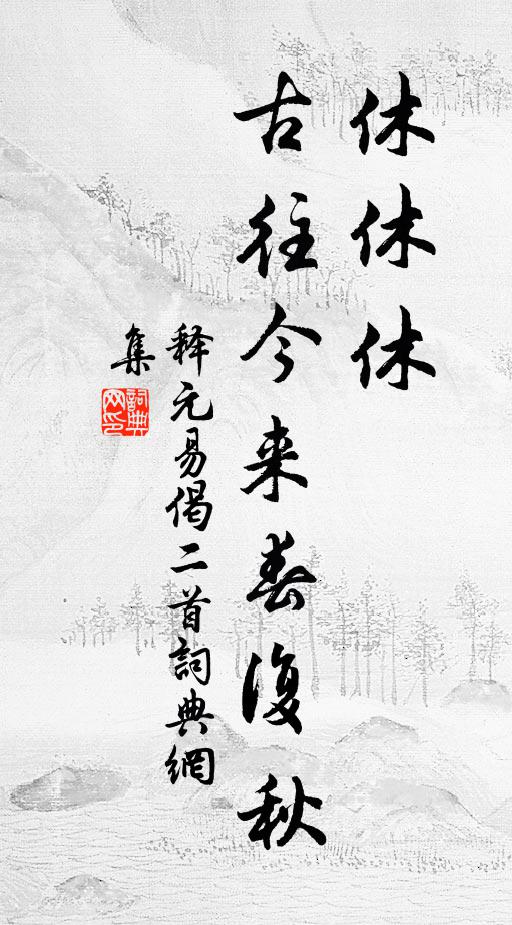 休休休
古往今来春復秋
释元易偈二首詞典網
集
詞典网印